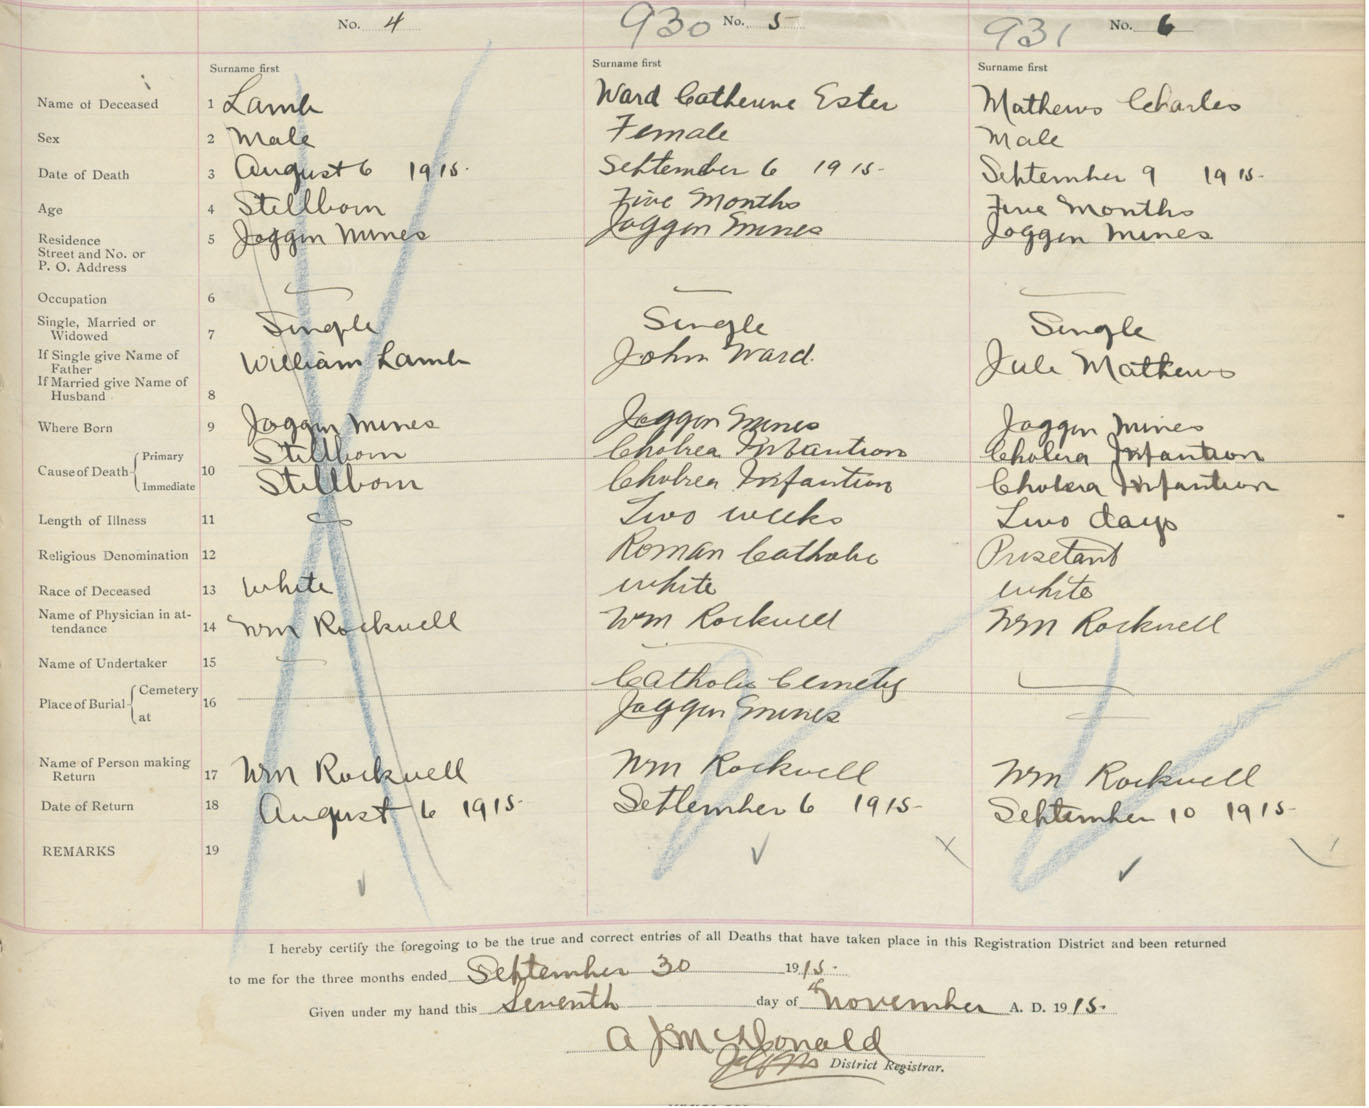 No. 4 930 No. 5 931 No. 6
Surname first Surname first Surname first
Name of Deceased 1 Lamb Ward Catherine Ester Mathews Charles
Sex 2 Male Female Male
Date of Death 3 August 6 1915. September 6 1915- September 9 1915-
Age 4 Stillborn Five Months Five Months
Residence 5 Joggin Mines Joggin Mines Joggin Mines
Street and No. or
P. O. Address
Occupation 6
Single, Married or
Widowed 7 Single Single Single
If Single give Name of
Father William Lamb John Ward. Jule Mathews
If Married give Name of
Husband 8
Where Born 9 Joggin Mines Joggin Mines Joggin Mines
Cause of Death Primary 10 Stillborn Cholrea Infantion Cholera Infantion
Immediate Stillborn Cholrea Infantion Cholera Infantion
Length of Illness 11 Two weeks Two days
Religious Denomination 12 Roman Catholic Prosetant
Race of Deceased 13 White white white
Name of Physician in at-
tendance 14 Wm Rockwell Wm Rockwell Wm Rockwell
Name of Undertaker 15
Place of Burial Cemetery 16 Catholic Cemety
at Joggin Mines
Name of Person making
Return 17 Wm Rockwell Wm Rockwell Wm Rockwell
Date of Return 18 August 6 1915- Setlember 6 1915- September 10 1915-
REMARKS 19
I hereby certify the foregoing to be the true and correct entries of all Deaths that have taken place in this Registration District and been returned
to me for the three months ended September 30 1915.
Given under my hand this Seventh day of November A. D. 1915.
A J McDonald
District Registrar.